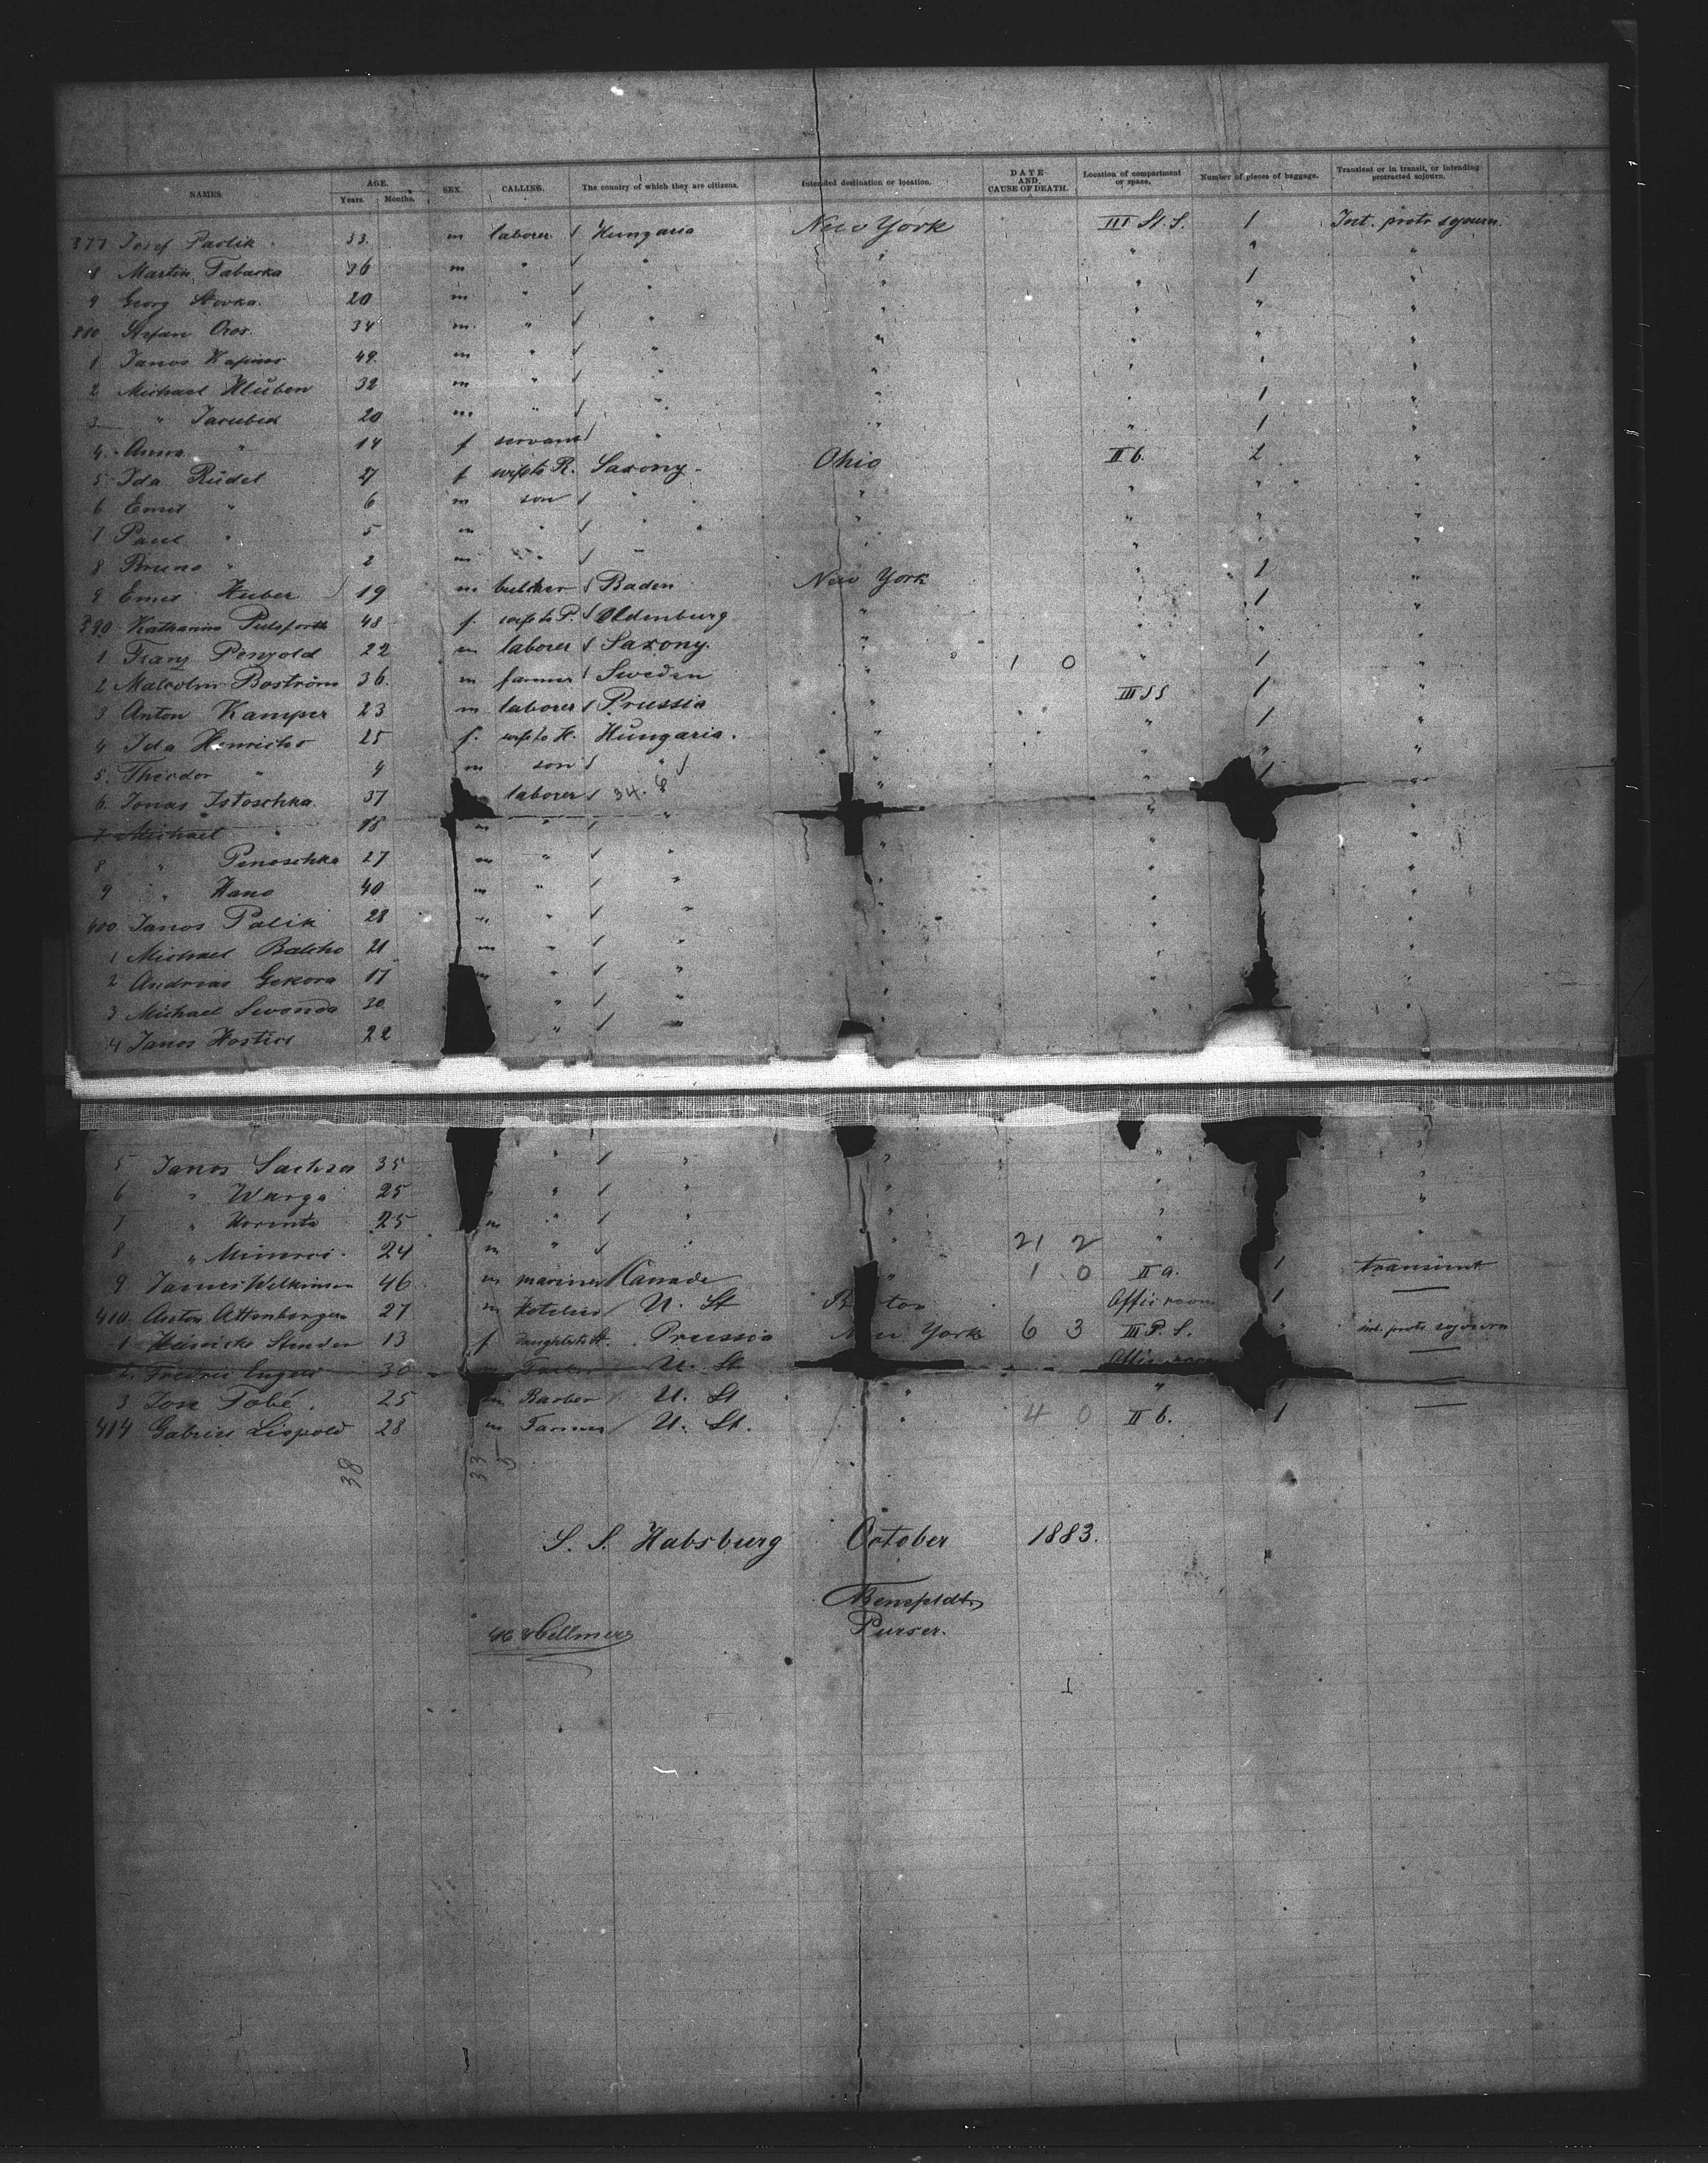 NAMES. AGE. Years. Months. SEX. CALLING. The country of which they are citizens. Intended destination or location. DATE AND CAUSE OF DEATH. Location of compartment or space. Number of pieces of baggage. Transient or in transit, or intending protracted sojourn.
377 Josef Pavlik 33 m laborer / Hungaria New York III St. S. 1 Int. protr sojourn.
8 Martin Tabarka 36 m " / " " " " "
9 Georg 20 m " / " " " 1 "
380 Stefan Oros. 34 m. " / " " " " "
1 Janos 49 m " / " " " " "
2 Michael Hluben 32 m " / " " " " "
3 " Jarubek 20 m " / " " " 1 "
4 Anna " 14 f servant / " " " 1 "
5 Ida Rüdel 27 f wife to R. Saxony Ohio II b. 2 "
6 Emil " 6 m son / " " " " "
7 Paul " 5 m " / " " " " "
8 Bruno " 2 m " / " " " " "
9 Emil Huber 19 m butcher / Baden New York " 1 "
390 Katharina 48 f. wife to P. / Oldenburg " " 1 "
1 Franz Penzold 22 m laborer / Saxony. " " " "
2 Malcolm Boström 36 m farmer / Sweden " 1 0 " 1 "
3 Anton Kamper 23 m laborer / Prussia " III S S 1 "
4 Ida Henrichs 25 f. wife to H. Hungaria. " " 1 "
5. Theodor " 9 m son / " " " " "
6. Jonas Istoschka 37 laborer / 34. 6 " " 1 "
7 Michael " 18 m " / " " " "
8 " Penoschka 27 m " / " " " "
9 " Hano 40 m " / " " " "
400. Janos Palik 28 m " / " " " "
1 Michael 21 m " / " " " "
2 Andreas Gekora 17 m " / " " " "
3 Michael 30 " / " " " "
4 Janos Hostics 22 " / " "
5 Janos Sachsa 35 " / " " " "
6 " Warga 25 " / " " " "
7 " 25 m " / " " " "
8 " 24 m " / " " 21 2 " "
9 James Wilkinson 46 m mariner / Canada " 1 0 II a. 1 transient
410. Anton Attenberger 27 m / U. St Office room 1
1 Stender 13 f Prussia New York 6 3 III P. S. " int. protr sojourn
2. Fredric Engels 30 U. St Office room
3 Tobé. 25 m Barber / U. St " " 1
414 Gabriel Lippold 28 m Farmer / U. St. " 4 0 II b. 1
38 33 5
S. S. Habsburg October 1883.
Purser.